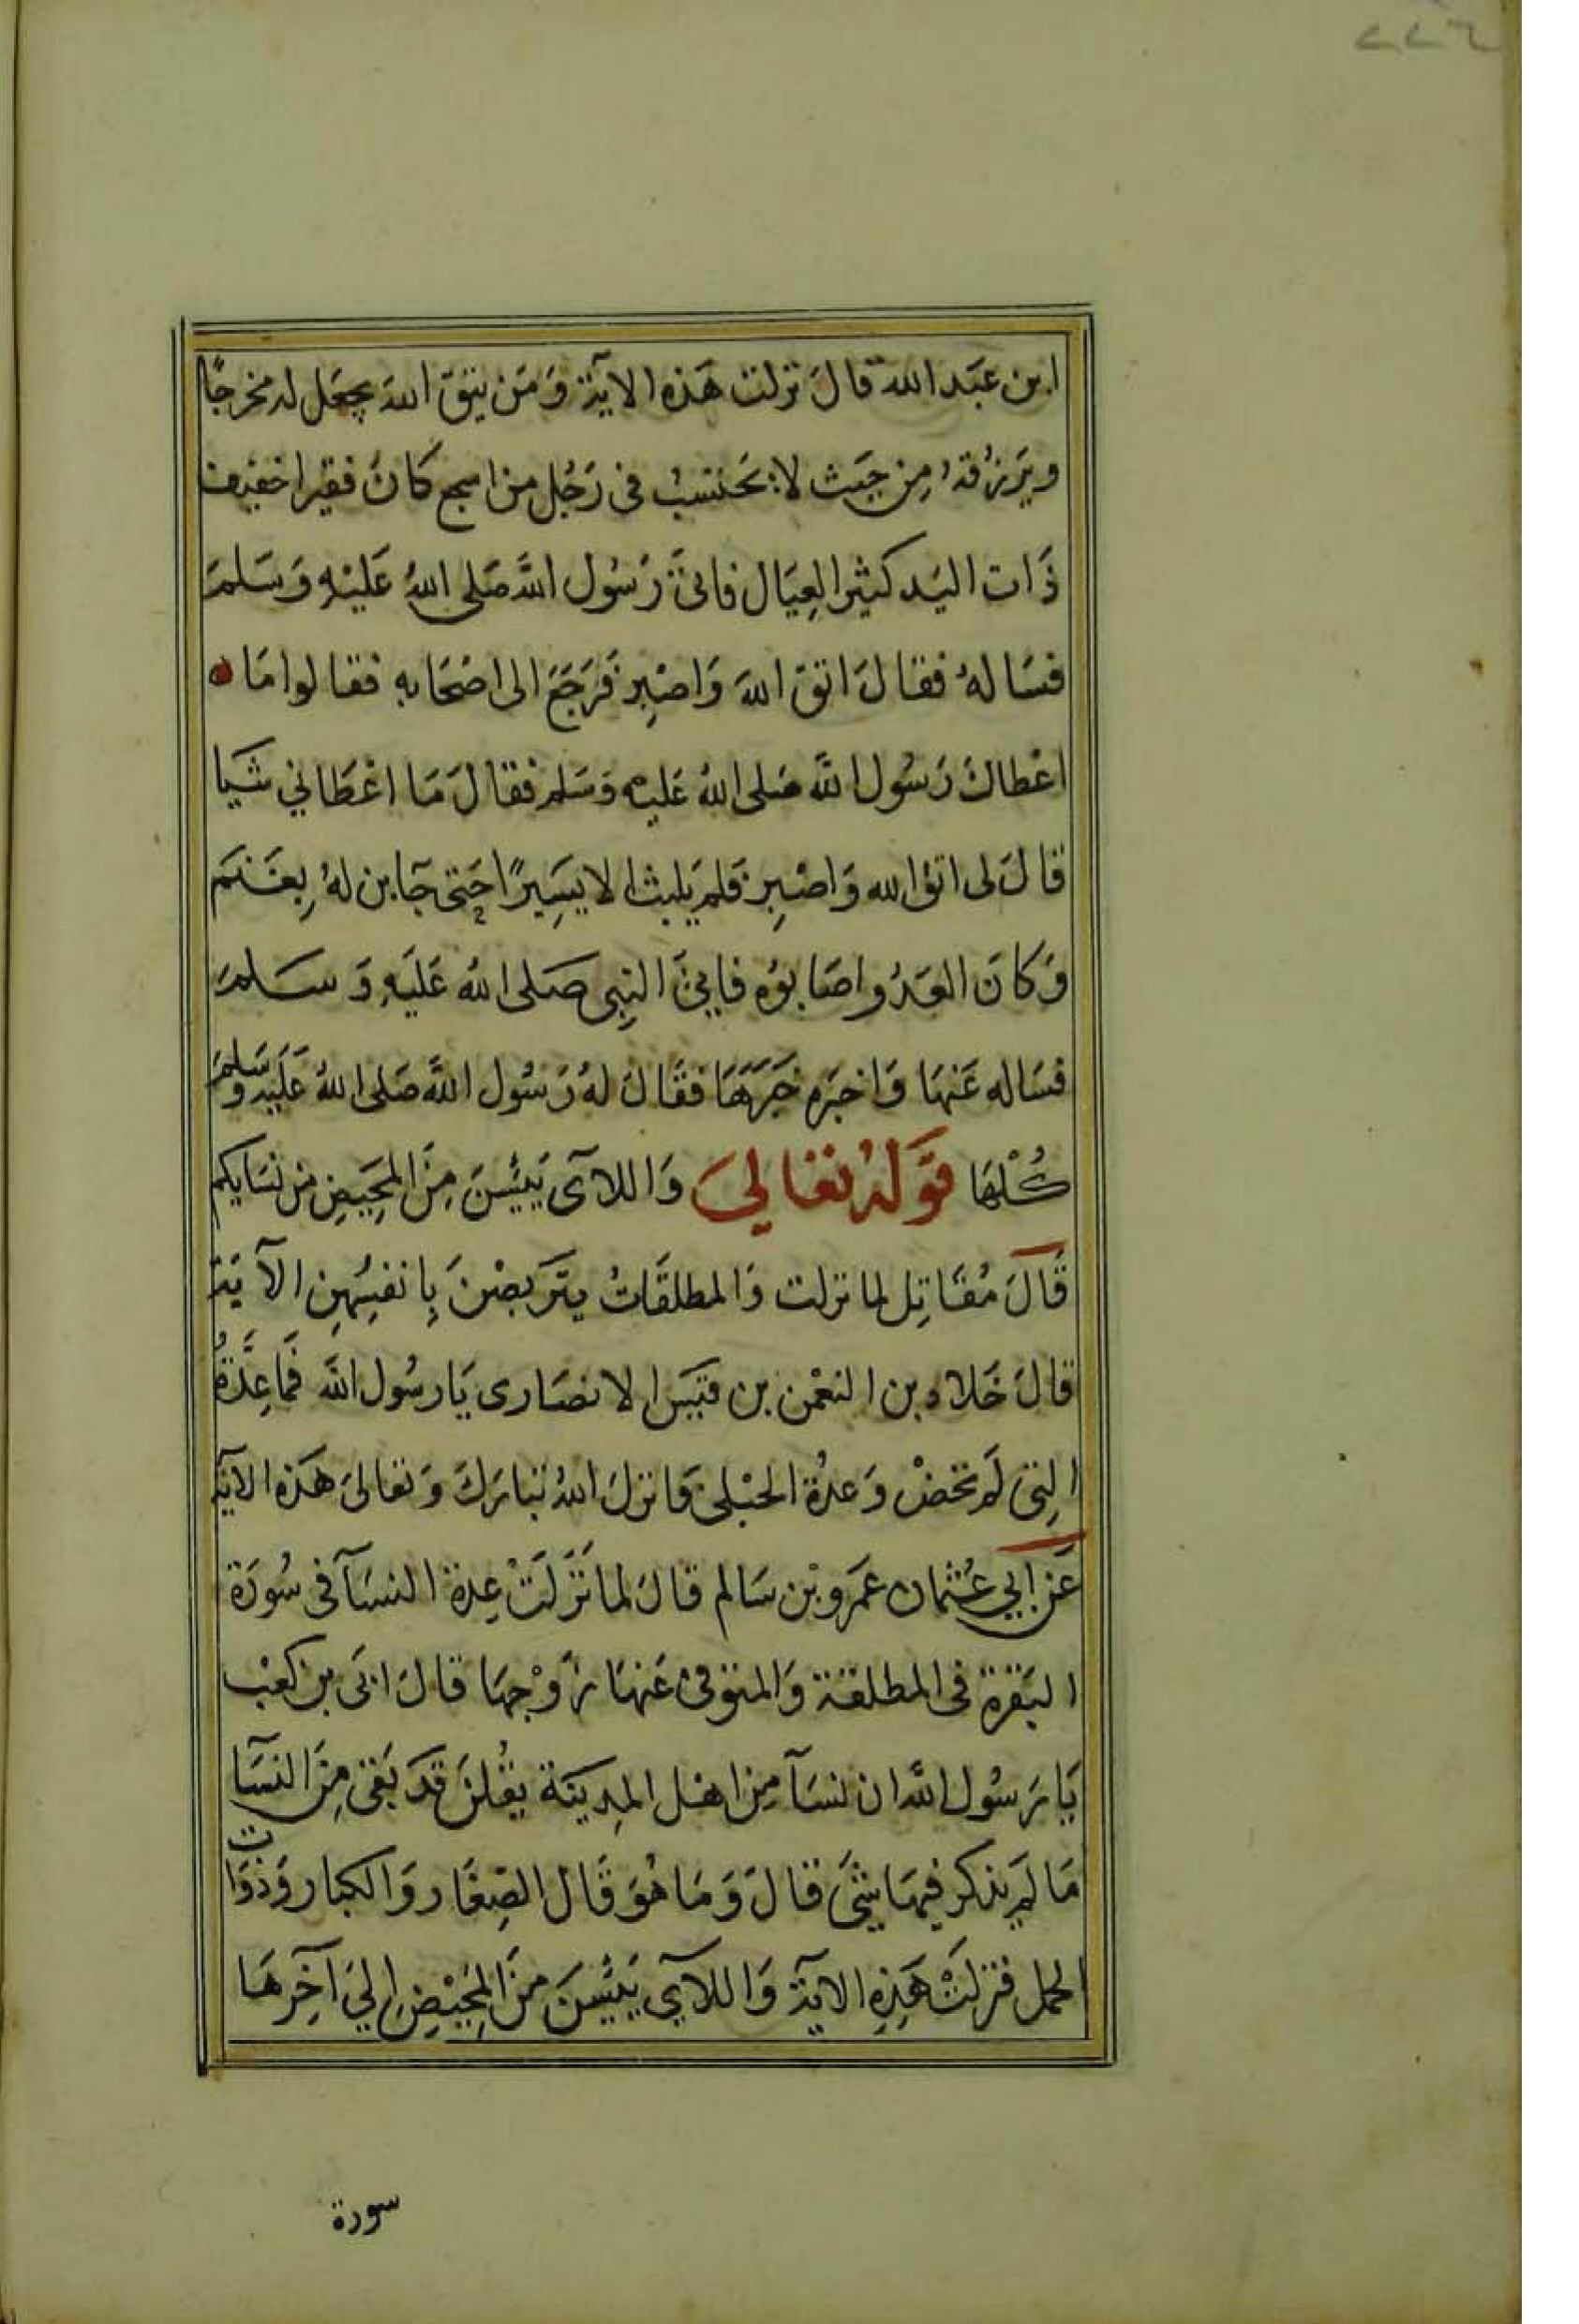 ٢٢٦
ابن عبد الله قال نزلت هذه الاية وَمَن يتق الله يجعَل له مخرجًا
ويَرزُقهُ مِن حَيث لا يَحتسبُ في رَجُل من اشجع كانَ فقيرا خفيف
ذَات اليَد كثير العِيَال فاتىَ رَسُول اللَّه صَلى اللهُ عَليْهِ وَسَلمَ
فسَالهُ فقالَ اتق اللهَ وَاصْبِر فَرَجَعَ الى اصْحَابه فقالوا مَا
اعْطاكَ رَسُول اللَّه صَلى اللهُ عَليه وَسَلم فقالَ مَا اعْطَاني شَيا
قالَ لى اتق الله وَاصْبِر فلم يَلبث الا يسِيرًا حَتى جَآ ابن لهُ بِغَنَم
وَكانَ العَدُو اصَابوُه فاتىَ النبِى صَلى اللهُ عَليَهِ وَسَلمَ
فسَاله عَنهَا وَاخبَره خَبَرَهَا فقَالَ لهُ رَسُول اللَّه صَلى اللهُ عَليَه وَسَلمَ
كُلْهَا قَولهُ تعَالىَ وَاللآى يَئِسْنَ مِنَ المَحِيَضِ من نسَايكم
قَالَ مُقَاتِل لما نزلت وَالمطلقَاتُ يتَربصْنَ بِانفسِهِن الآيَة
قالَ خَلاد بن النعْمن بن قيَس الانصَارى يَا رسُول اللَّه فَمَا عِدَّةُ
التِى لَم تحَضْ وَعدُة الحبْلى فانزلَ اللهُ تبَارَكَ وَتعَالىَ هَذه الاية
عَن ابي عُثمان عمَرو بْن سَالم قالَ لما نَزَلَتْ عِدة النسَآ فى سُورَة
البَقرة فى المطلقة وَالمتوَفى عَنهَا زَوْجهَا قالَ ابَى بن كعْب
يَا رَسُول اللَّه ان نسَآ مِن اهْل المدِينَة يقُلنَ قدَ بَقى مِنَ النسَآ
مَا لم يَذكر فيهَا شىَ قالَ وَمَا هُوَ قَال الصِغَار وَالكبَار وَذوَات
الحمل فنزلَتْ هَذِهِ الايَة وَاللآي يَئِسْنَ مِنَ المَحِيْضِ اِليَ آخِرهَا
سورة